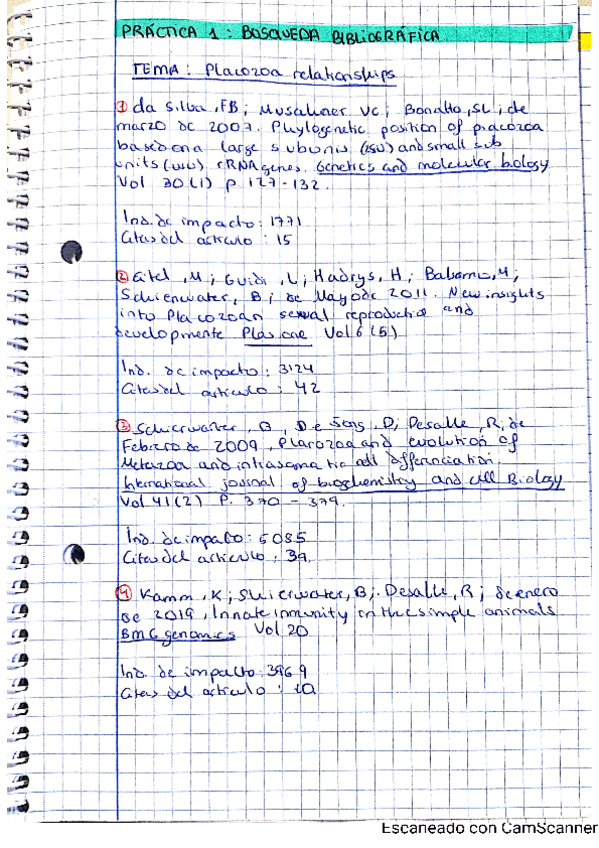 PRÁCTICA 1: BÚSQUEDA BIBLIOGRÁFICA
TEMA: Placozoa relationships
① da Silva, FB; Muschner VC; Bonatto, SL; de
marzo de 2007. Phylogenetic position of placozoa
based on a large subunits (LSU) and small sub
units (SSU) rRNA genes. Genetics and molecular biology
Vol 30(1) p. 127-132.
Ind. de impacto: 1771
Citas del artículo: 15
② Eitel, M; Guidi, L; Hadrys, H; Balsamo, M;
Schierwater, B; de Mayo de 2011. New insights
into Placozoan sexual reproduction and
developmente Plos one Vol 6 (5)
Ind. de impacto: 3124
Citas del artículo: 42
③ Schierwater, B, De Jong, D, Desalle, R, de
Febrero de 2009, Placozoa and evolution of
Metazoa and intrasomatic cell differenciation
International journal of biochemistry and cell Biology
Vol 41(2) P. 370 - 379.
Ind. de impacto: 5085
Citas del artículo: 39
④ Kamm, K; Schierwater, B; Desalle, R; de enero
de 2019, Innate inmunity in the simple animals
BMC genomics Vol. 20
Ind. de impacto: 3969
Citas del artículo: 10
Escaneado con CamScanner